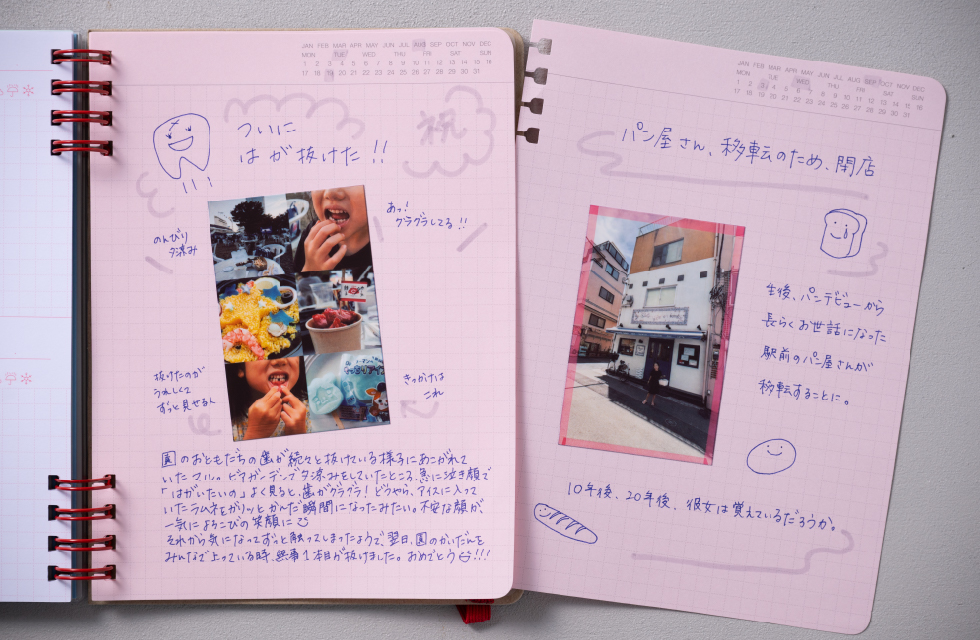 JAN FEB MAR APR MAY JUN JUL AUG SEP OCT NOV DEC
MON TUE WED THU FRI SAT SUN
1 2 3 4 5 6 7 8 9 10 11 12 13 14 15 16
17 18 19 20 21 22 23 24 25 26 27 28 29 30 31
ついに
はが抜けた!!
祝
のんびり
夕涼み
あっ!
グラグラしてる!!
抜けたのが
うれしくて
ずっと見せる人
きっかけは
これ
園のおともだちの歯が続々と抜けている様子にあこがれて
いたマル。ビアガーデンで夕涼みをしていたところ、急に泣き顔で
「はがいたいの」よく見ると、歯がグラグラ!どうやら、アイスに入って
いたラムネをガリッとかんだ瞬間になったみたい。不安な顔が、
一気によろこびの笑顔に
それから気になってずっと触ってしまったようで、翌日、園のかいだんを
みんなで上っている時、無事1本目が抜けました。おめでとう!!!
JAN FEB MAR APR MAY JUN JUL AUG SEP OCT NOV DEC
MON TUE WED THU FRI SAT SUN
1 2 3 4 5 6 7 8 9 10 11 12 13 14 15 16
17 18 19 20 21 22 23 24 25 26 27 28 29 30 31
パン屋さん、移転のため、閉店
生後、パンデビューから
長らくお世話になった
駅前のパン屋さんが
移転することに。
10年後、20年後、彼女は覚えているだろうか。